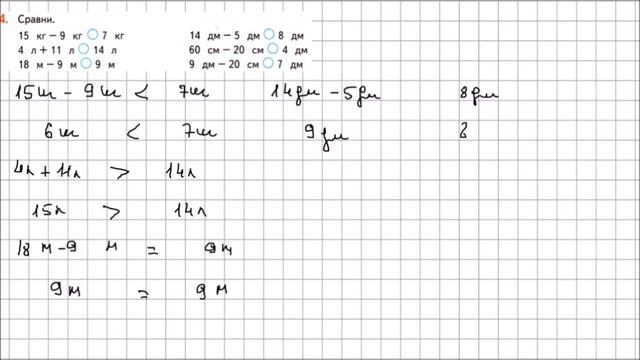 4. Сравни.
15 кг – 9 кг ○ 7 кг
4 л + 11 л ○ 14 л
18 м – 9 м ○ 9 м
14 дм – 5 дм ○ 8 дм
60 см – 20 см ○ 4 дм
9 дм – 20 см ○ 7 дм
15кг – 9кг < 7кг
6кг < 7кг
4л + 11л > 14л
15л > 14л
18 м – 9 м = 9м
9м = 9м
14дм – 5дм 8дм
9дм 8